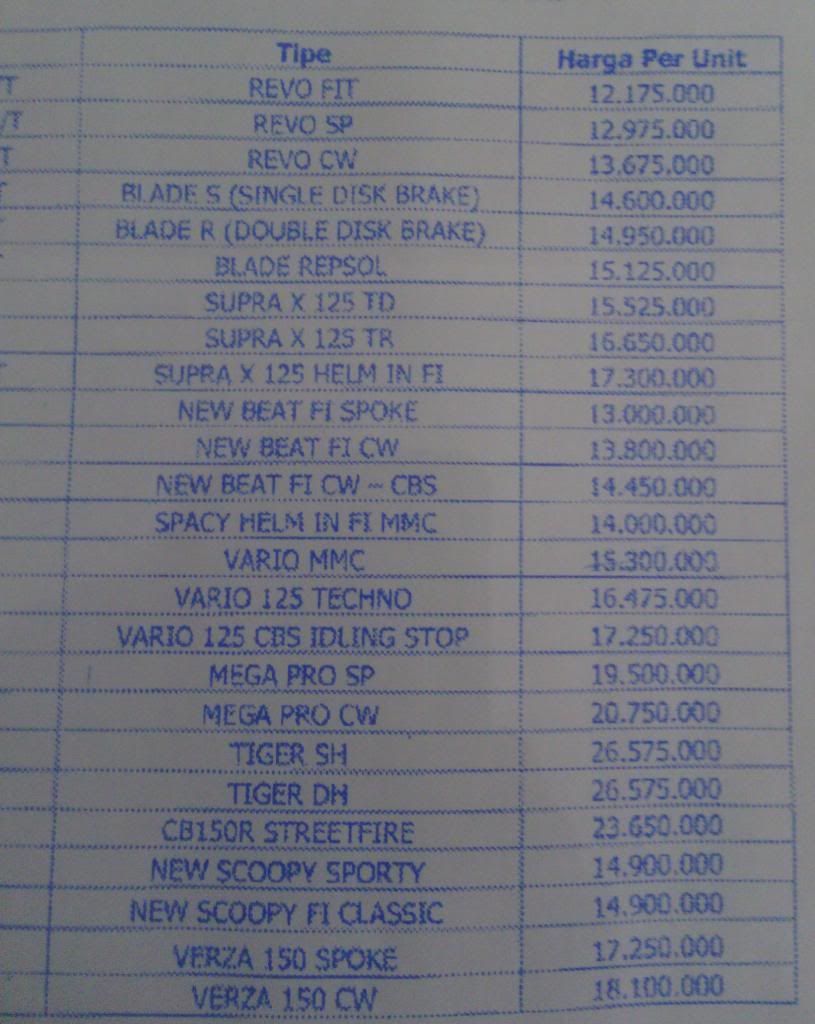 Tipe Harga Per Unit
T REVO FIT 12.175.000
/T REVO SP 12.975.000
T REVO CW 13.675.000
BLADE S (SINGLE DISK BRAKE) 14.600.000
BLADE R (DOUBLE DISK BRAKE) 14.950.000
BLADE REPSOL 15.125.000
SUPRA X 125 TD 15.525.000
SUPRA X 125 TR 16.650.000
SUPRA X 125 HELM IN FI 17.300.000
NEW BEAT FI SPOKE 13.000.000
NEW BEAT FI CW 13.800.000
NEW BEAT FI CW ~ CBS 14.450.000
SPACY HELM IN FI MMC 14.000.000
VARIO MMC 15.300.000
VARIO 125 TECHNO 16.475.000
VARIO 125 CBS IDLING STOP 17.250.000
MEGA PRO SP 19.500.000
MEGA PRO CW 20.750.000
TIGER SH 26.575.000
TIGER DH 26.575.000
CB150R STREETFIRE 23.650.000
NEW SCOOPY SPORTY 14.900.000
NEW SCOOPY FI CLASSIC 14.900.000
VERZA 150 SPOKE 17.250.000
VERZA 150 CW 18.100.000